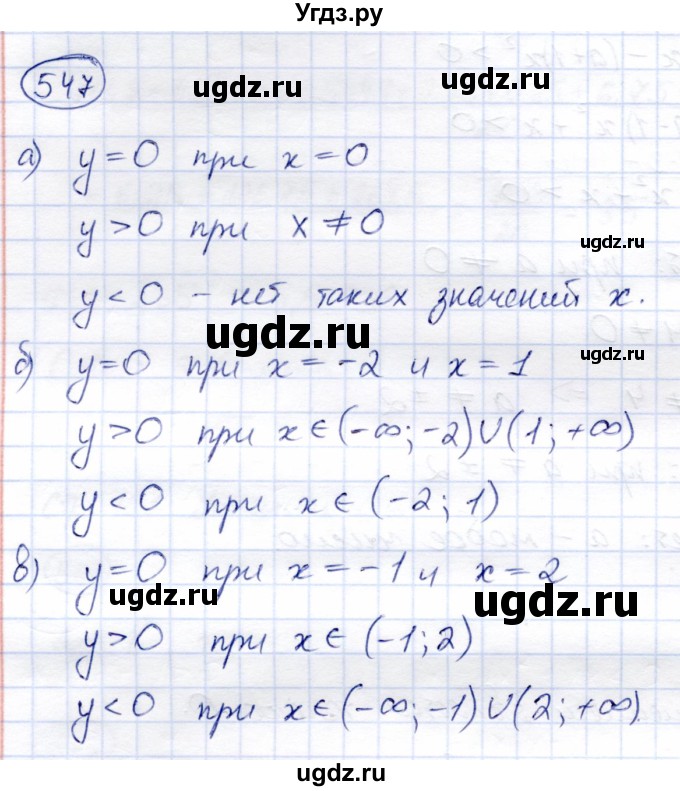 Угдз.ру
547
ugdz.ru
а) y = 0 при x = 0
y > 0 при x ≠ 0
ugdz.ru
y < 0 - нет таких значений x.
ugdz.ru
ugdz.ru
б) y = 0 при x = -2 и x = 1
y > 0 при x ∈ (-∞; -2) ∪ (1; +∞)
ugdz.ru
ugdz.ru
y < 0 при x ∈ (-2; 1)
в) y = 0 при x = -1 и x = 2
ugdz.ru
ugdz.ru
y > 0 при x ∈ (-1; 2)
y < 0 при x ∈ (-∞; -1) ∪ (2; +∞)
ugdz.ru
ugdz.ru